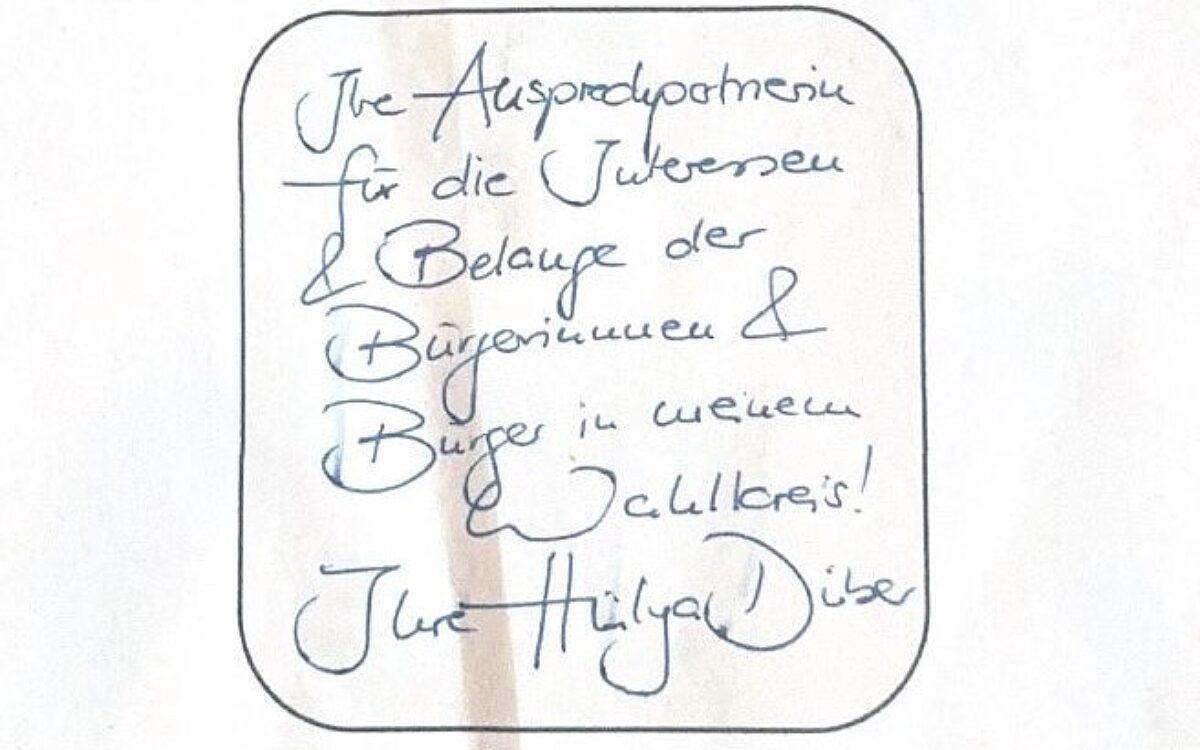 Ihre Ansprechpartnerin
für die Interessen
& Belange der
Bürgerinnen &
Bürger in meinem
Wahlkreis!
Ihre Hülya Düber